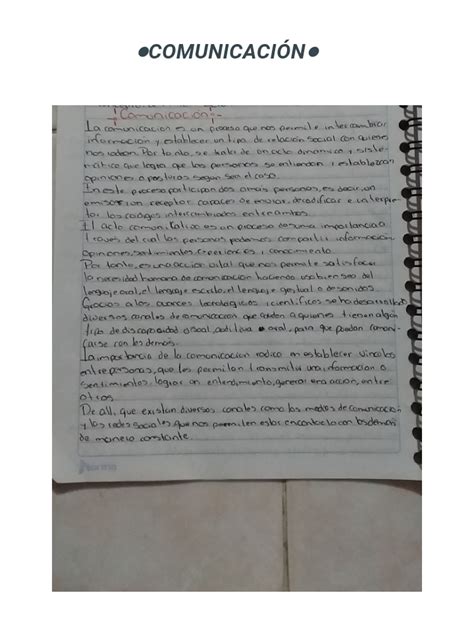 ●COMUNICACIÓN●
Comunicación
La comunicacion es un proceso que nos permite intercambiar
informacion y establecer un tipo de relacion social con quienes
nos rodean. Por tanto, se trata de un acto dinamico y siste-
mático que logra que las personas se entiendan y establezcan
opiniones o posturas segun sea el caso.
En este proceso participan dos o mas personas, es decir, un
emisor y un receptor capaces de enviar, decodificar e interpre-
tar los codigos intercambiados entre ambos.
El acto comunicativo es un proceso de suma importancia a
traves del cual las personas podemos compartir informacion,
opiniones, sentimientos, experiencias y conocimiento.
Por tanto, es una accion vital que nos permite satisfacer
la necesidad humana de comunicación haciendo uso bien sea del
lenguaje oral, el lenguaje escrito, el lenguaje gestual o de sonidos.
Gracias a los avances tecnologicos y cientificos se ha desarrollado
diversos canales de comunicacion que ayudan a quienes tienen algún
tipo de discapacidad visual, auditiva u oral, para que puedan comuni-
carse con los demás.
La importancia de la comunicacion radica en establecer vinculos
entre personas, que les permitan transmitir una informacion o
sentimientos, lograr un entendimiento, generar una acción, entre
otros.
De allí, que existan diversos canales como los medios de comunicación
y las redes sociales que nos permiten estar en contacto con los demás
de manera constante.